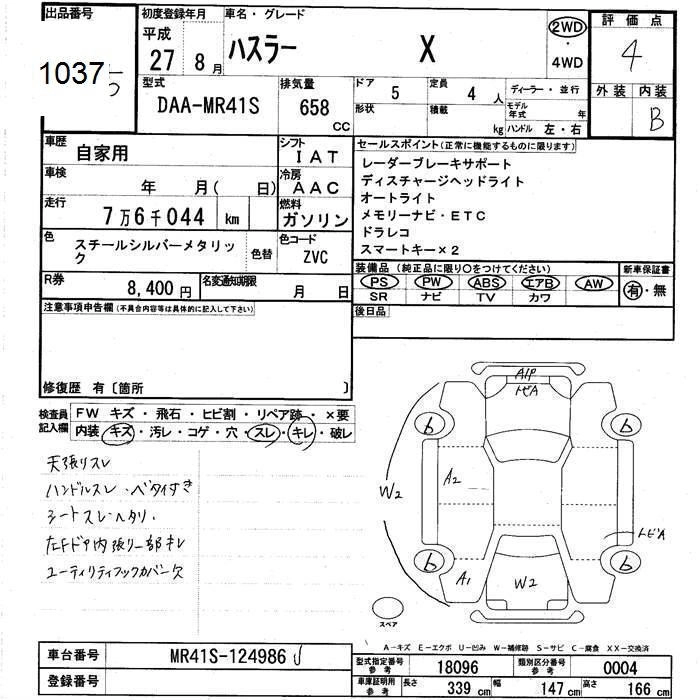 出品番号
10375
初度登録年月
平成
27 8月
車名・グレード
ハスラー X
2WD
・
4WD
評価点
4
外装 内装
B
型式
DAA-MR41S
排気量
658
CC
ドア 5
形状
定員 4 人
積載 kg
ディーラー・並行
モデル年式 年
ハンドル 左・右
車歴 自家用
シフト IAT
車検 年 月( 日)
冷房 AAC
走行 7万6千044 km
燃料 ガソリン
色 スチールシルバーメタリック
色替
色コード ZVC
R券 8,400円
名変通知期限 月 日
セールスポイント(正常に機能するものに限ります)
レーダーブレーキサポート
ディスチャージヘッドライト
オートライト
メモリーナビ・ETC
ドラレコ
スマートキー×2
装備品 (純正品に限り○をつけてください)
新車保証書
PS PW ABS エアB AW
SR ナビ TV カワ
有・無
後日品
注意事項申告欄(不具合内容等は具体的に記入して下さい)
修復歴 有〔箇所 〕
検査員記入欄
FW キズ・飛石・ヒビ割・リペア跡・×要
内装・キズ・汚レ・コゲ・穴・スレ・キレ・破レ
天張リスレ
ハンドルスレ・ベタ付き
シートスレ・ヘタリ.
左Fドア内張リ一部キレ
ユーティリティフックカバー欠
A1P
トビA
6 6
A2
W2
トビA
6 6
A1
W2
スペア
A-キズ E-エクボ U-凹み W-補修跡 S-サビ C-腐食 XX-交換済
車台番号 MR41S-124986
登録番号
型式指定番号 参考 18096
類別区分番号 参考 0004
車庫証明用 参考 長さ 339 cm 幅 147 cm 高さ 166 cm